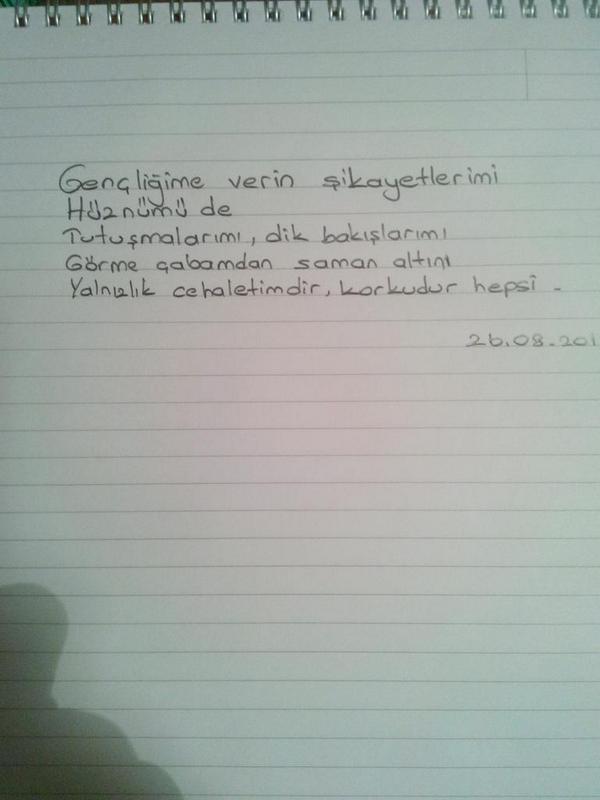 Gençliğime verin şikayetlerimi
Hüznümü de
Tutuşmalarımı, dik bakışlarımı
Görme çabamdan saman altını
Yalnızlık cehaletimdir, korkudur hepsi.
26.08.201